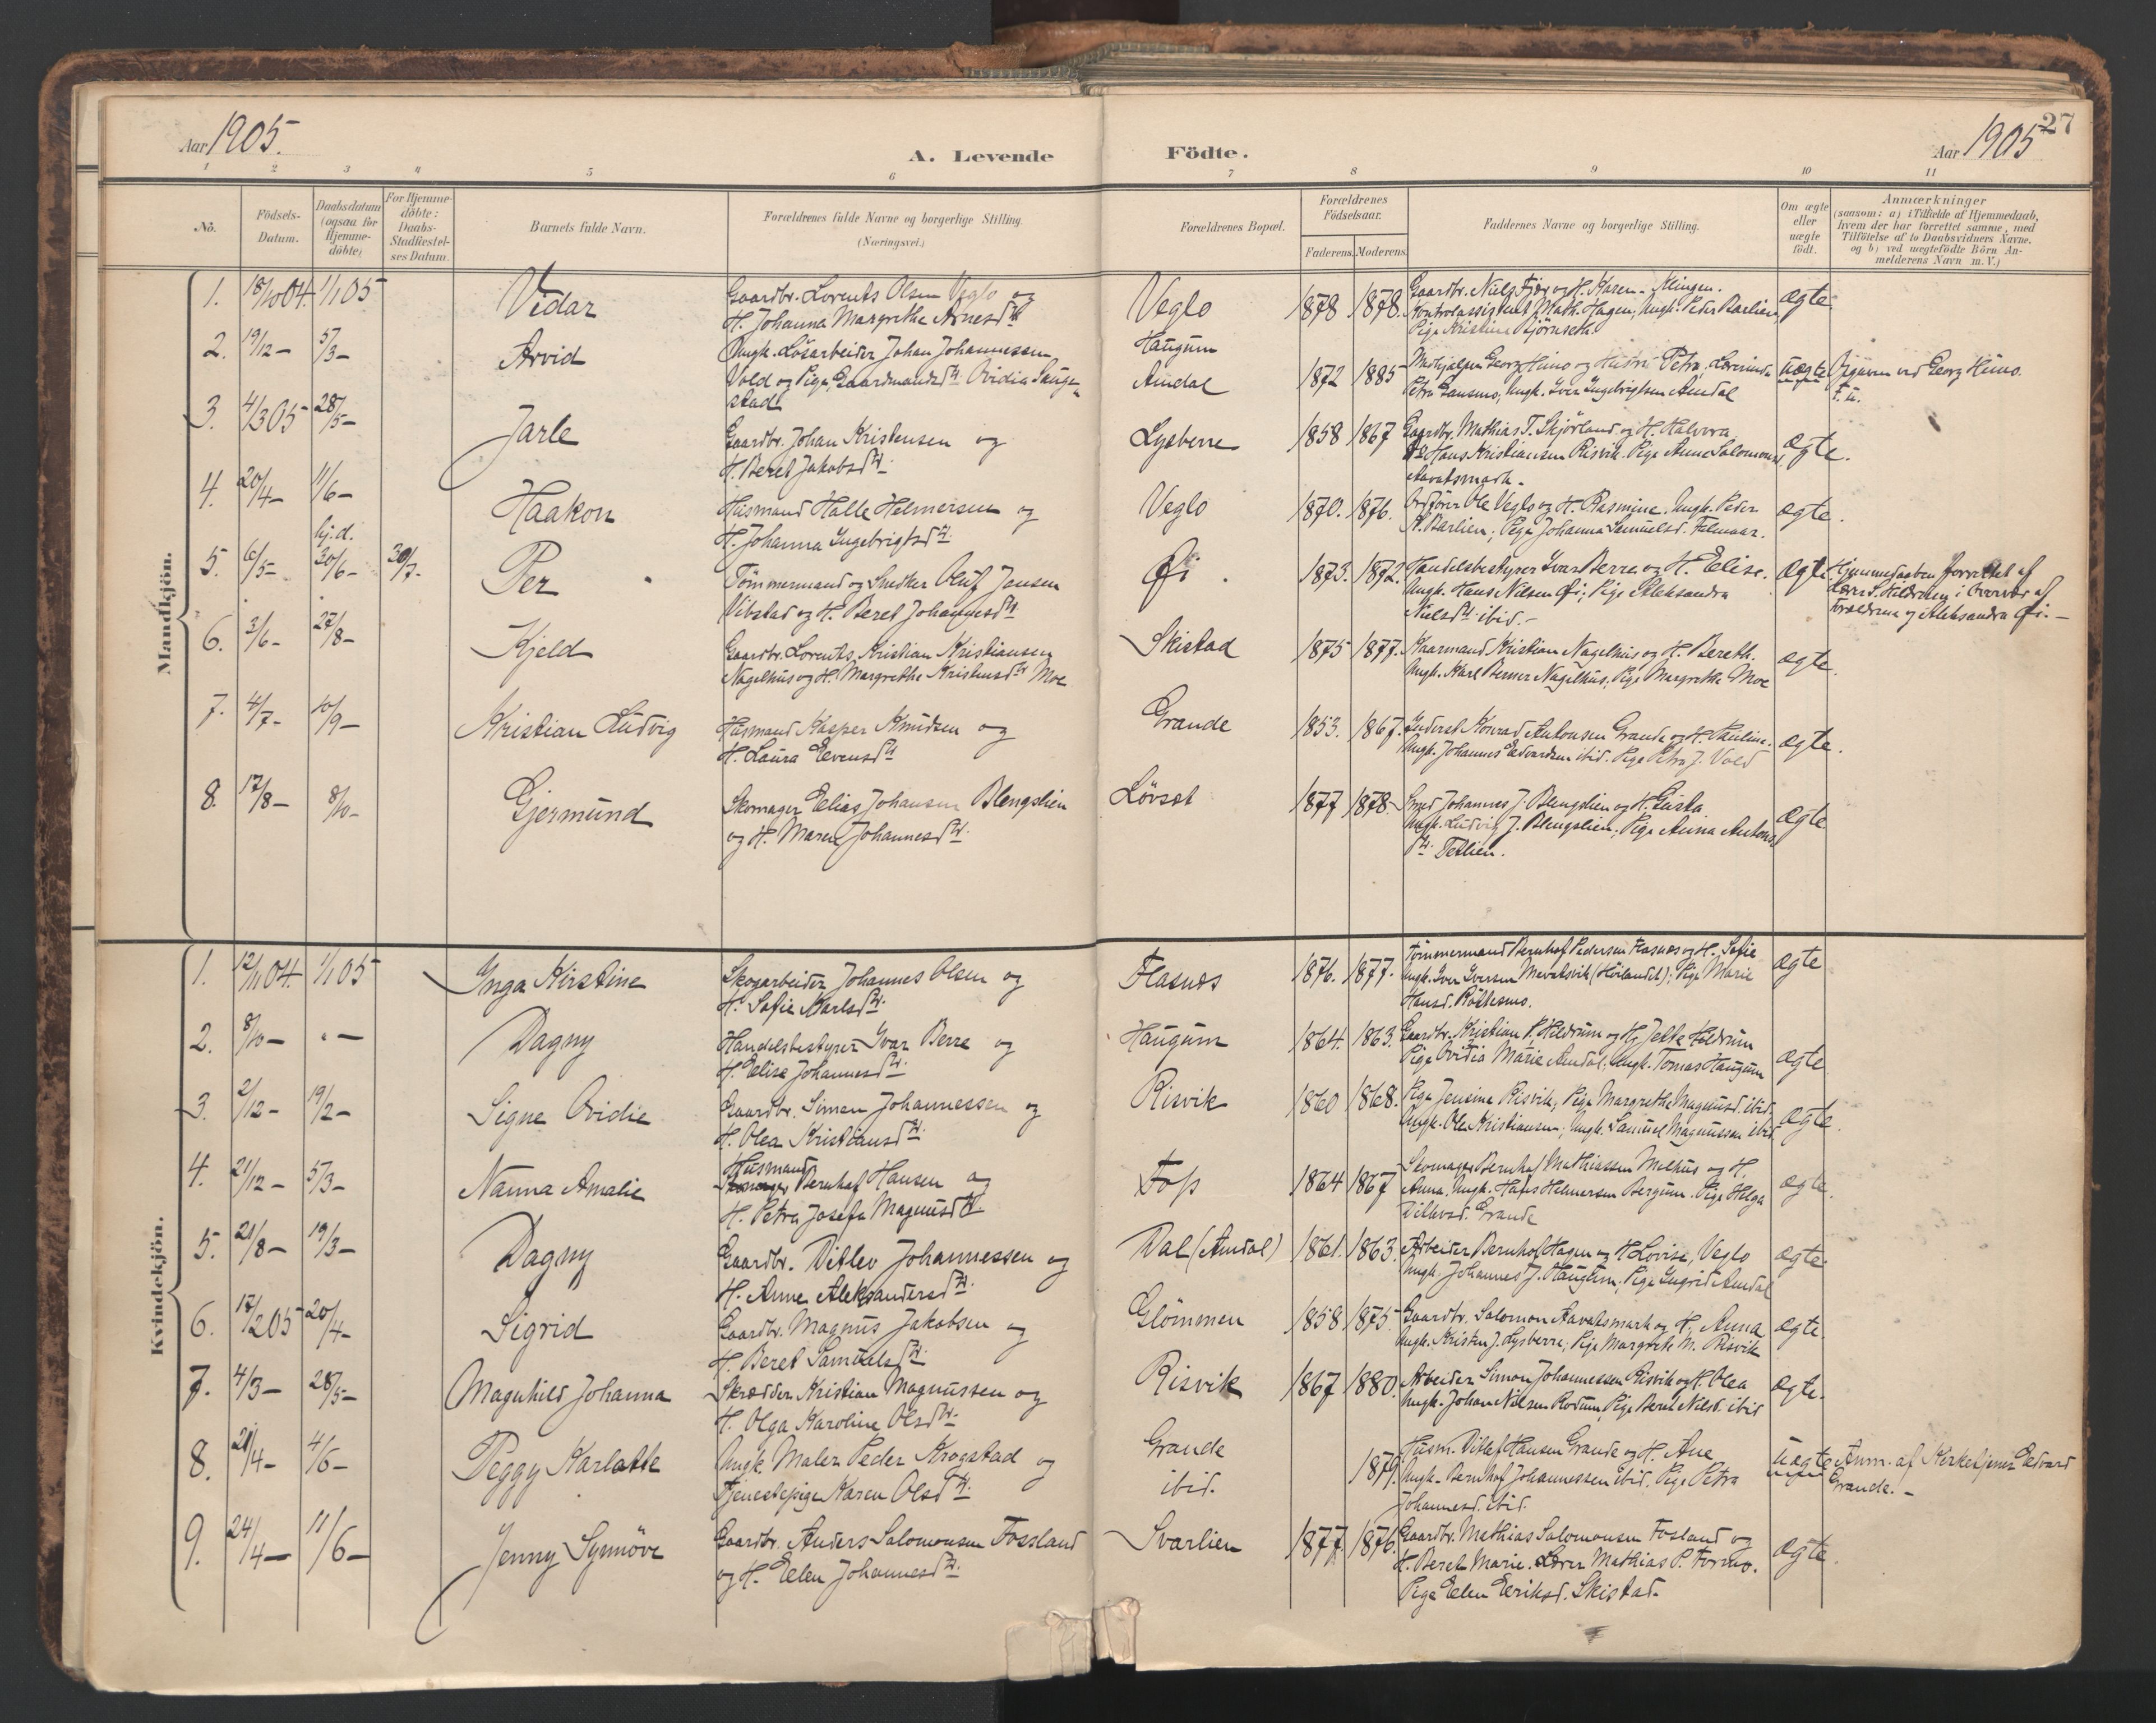 Aar 1905.
A. Levende Födte.
Aar 1905
27
1 2 3 4 5 6 7 8 9 10 11
No.
Födsels-Datum.
Daabsdatum (ogsaa for Hjemme-döbte)
For Hjemme-döbte: Daabs-Stadfæstel-ses Datum.
Barnets fulde Navn.
Forældrenes fulde Navne og borgerlige Stilling. (Næringsvei.)
Forældrenes Bopæl.
Forældrenes Födselsaar.
Faderens. Moderens.
Faddernes Navne og borgerlige Stilling.
Om ægte eller uægte födt.
Anmærkninger
(saasom: a) i Tilfælde af Hjemmedaab,
hvem der har forrettet samme, med
Tilföielse af to Daabsvidners Navne.
og b) ved uægtefödte Börn An-
melderens Navn m. V.)
Mandkjön.
1. 18/10 04. 1/1 05 Vidar
Gaardbr. Lorents Olsen Veglo og
H. Johanna Margrethe Arnesdtr.
Veglo 1878 1878.
Gaardbr. Niels Fjær og H. Karen Klingen.
Kontrolassistent Math. Hagen; Ungk. Peter Barlien,
Pige Kristine Bjørnseth
ægte.
2. 19/12- 5/3- Arvid
Ungk. Løsarbeider Johan Johannessen
Vold og Pige, Gaardmandsdtr. Ovidia Haugen
stad
Haugum
Amdal 1872 1885
Georg Himo og Hustru Petra,
Petra Gansmo, Ungk. Iver Ingebrigtsen Amdal
uægte
ved Georg Himo.
F. u.
3. 4/3 05 28/5- Jarle
Gaardbr. Johan Kristensen og
H. Beret Jakobsdtr.
Lysberre 1858 1867
Gaardbr. Mathias T. Skjörland og H. Halvora
Hans Kristiansen Risvik. Pige Anne Salomonsd.
Aavatsmark.
ægte.
4. 20/4- 11/6- Haakon
Husmand Halle Helmersen og
H. Johanna Ingebrigtsdtr.
Veglo 1870. 1876.
Ordfører Ole Veglo og H. Rasmine. Ungk. Peter
A. Barlien; Pige Johanna Samuelsd.
ægte.
5. 6/5- hj.d. 30/6- 30/7- Per
Tømmermand og Snedker Oluf Jensen
Vibstad og H. Beret Johannesdtr.
Øi. 1873. 1872.
Handelsbestyrer Ivar Berre og H. Elise.
Ungk. Hans Nilsen Øi; Pige Aleksandra
Nielsdtr. ibid.-
ægte.
Hjemmedaaben forrettet af
Lærer S. Hildrum i Overvær af
Forældrene og Aleksandra Øi.-
6. 3/6- 27/8- Kjeld
Gaardbr. Lorents Kristian Kristiansen
Nagelhus og H. Margrethe Kristensdtr. Moe
Skistad 1875 1877.
Kaarmand Kristian Nagelhus og H. Bereth.
Ungk. Karl Berner Nagelhus; Pige Margrethe Moe
ægte.
7. 4/7- 10/9- Kristian Ludvig
Husmand Kasper Knudsen og
H. Laura Evensdtr
Grande 1853. 1867.
Inderst Konrad Antonsen Grande og H. Pauline.
Ungk. Johannes Edvardsen ibid. Pige Petra J. Vold
ægte.
8. 17/8- 8/10- Gjermund
Skomager Elias Johansen Blengslien
og H. Maren Johannesdtr.
Lövset 1877 1878.
Smed Johannes J. Blengslien og H. Gusta
Ungk. Ludvig J. Blengslien; Pige Anna Antons
dtr. Tetlien.
ægte.
Kvindekjön.
1. 12/11 04. 1/1 05 Inga Kirstine
Skogarbeider Johannes Olsen og
H. Sofie Karlsdtr.
Flasnes 1876. 1877.
Tømmermand Bernhof Pedersen Flasnes og H. Sofie
Ungk. Iver Iversen Mevatsvik (Höilandet); Pige Marie
Hansd.
ægte
2. 8/10- "- Dagny
Handelsbestyrer Ivar Berre og
H. Elise Johannesdtr.
Haugum 1864. 1863.
Gaardbr. Kristian P. Hildrum og H. Jette Hildrum
Pige Ovidia Marie Amdal; Ungk. Tomas Haugum
ægte
3. 2/12- 19/2- Signe Ovidie
Gaardbr. Simen Johannessen og
H. Olea Kristiansdtr.
Risvik 1860 1868.
Pige Jensine Risvik; Pige Margrethe Magnusd. ibid.
Ungk. Ole Kristiansen; Ungk. Samuel Magnussen ibid.
ægte.
4. 21/12- 5/3- Nanna Amalie
Husmand
Skomager Bernhof Hansen og
H. Petra Josefa Magnusdtr.
Fos 1864 1867
Skomager Bernhof Mathiassen Melhus og H.
Anna. Ungk. Hans Helmersen Bergum. Pige Helga
Ditlevsd. Grande
ægte.
5. 21/8- 19/3- Dagny
Gaardbr. Ditlev Johannessen og
H. Anne Aleksandersdtr.
Dal (Amdal) 1861. 1863.
Arbeider Bernhof Hagen og H. Lovise, Veglo
Ungk. Johannes J. Haugum; Pige Ingrid Amdal
ægte.
6. 17/2 05 20/4- Sigrid
Gaardbr. Magnus Jakobsen og
H. Beret Samuelsdtr.
Glömmen 1858 1875.
Gaardbr. Salomon Aavatsmark og H. Anna
Ungk. Kristen J. Lysberre; Pige Margrete M. Risvik
ægte.
7. 4/3- 28/5- Magnhild Johanna
Skrædder Kristian Magnussen og
H. Olga Karoline Olsdtr.
Risvik 1867 1880.
Arbeider Simon Johannessen Risvik og H. Olea
Ungk. Johan Nilsen Rodum, Pige Beret Nilsd. ibid
ægte.
8. 21/4- 4/6- Peggy Karlotte
Ungk. Maler Peder Krogstad og
Tjenestepige Karen Olsdtr.
Grande
ibid. 1879.
Husm. Ditlef Hansen Grande og H. Ane
Ungk. Bernhof Johannessen ibid. Pige Petra
Johannesd. ibid.
uægte
Anm. af Kirketjener Edvard
Grande.-
9. 24/4- 11/6- Jenny Synnöve
Gaardbr. Anders Salomonsen Fossland
og H. Elen Johannesdtr.
Svarlien 1877. 1876.
Gaardbr. Mathias Salomonsen Fosland og
H. Beret Marie. Lærer Mathias P. Formo.
Pige Elen Eriksd. Skistad.
ægte.